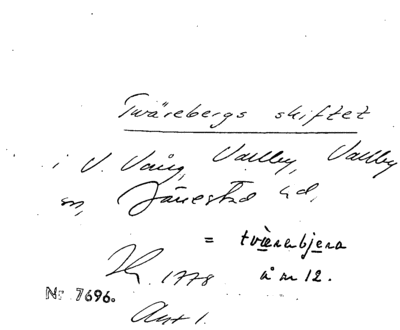 Twärebergs skiftet
i V. Vång, Vallby, Vallby
sn, Järrestad hd,
= tvärabjera
1778 å nr 12.
Nr 7696.
Akt 1.